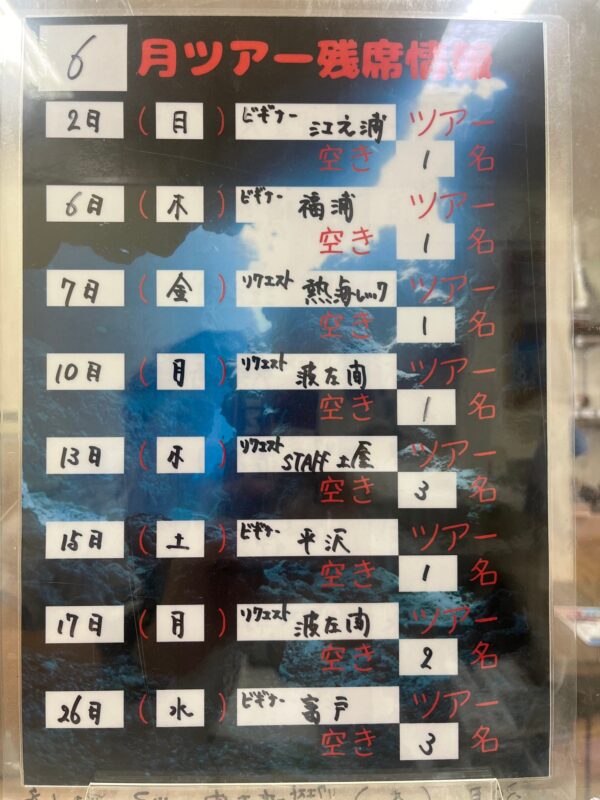 6月ツアー残席情報
2日(日)ビギナー 江之浦 ツアー
空き 1 名
6日(木)ビギナー 福浦 ツアー
空き 1 名
7日(金)リクエスト 熱海レック ツアー
空き 1 名
10日(月)リクエスト 波左間 ツアー
空き 1 名
13日(木)リクエスト STAFF 土屋 ツアー
空き 3 名
15日(土)ビギナー 平沢 ツアー
空き 1 名
17日(月)リクエスト 波左間 ツアー
空き 2 名
26日(水)ビギナー 富戸 ツアー
空き 3 名